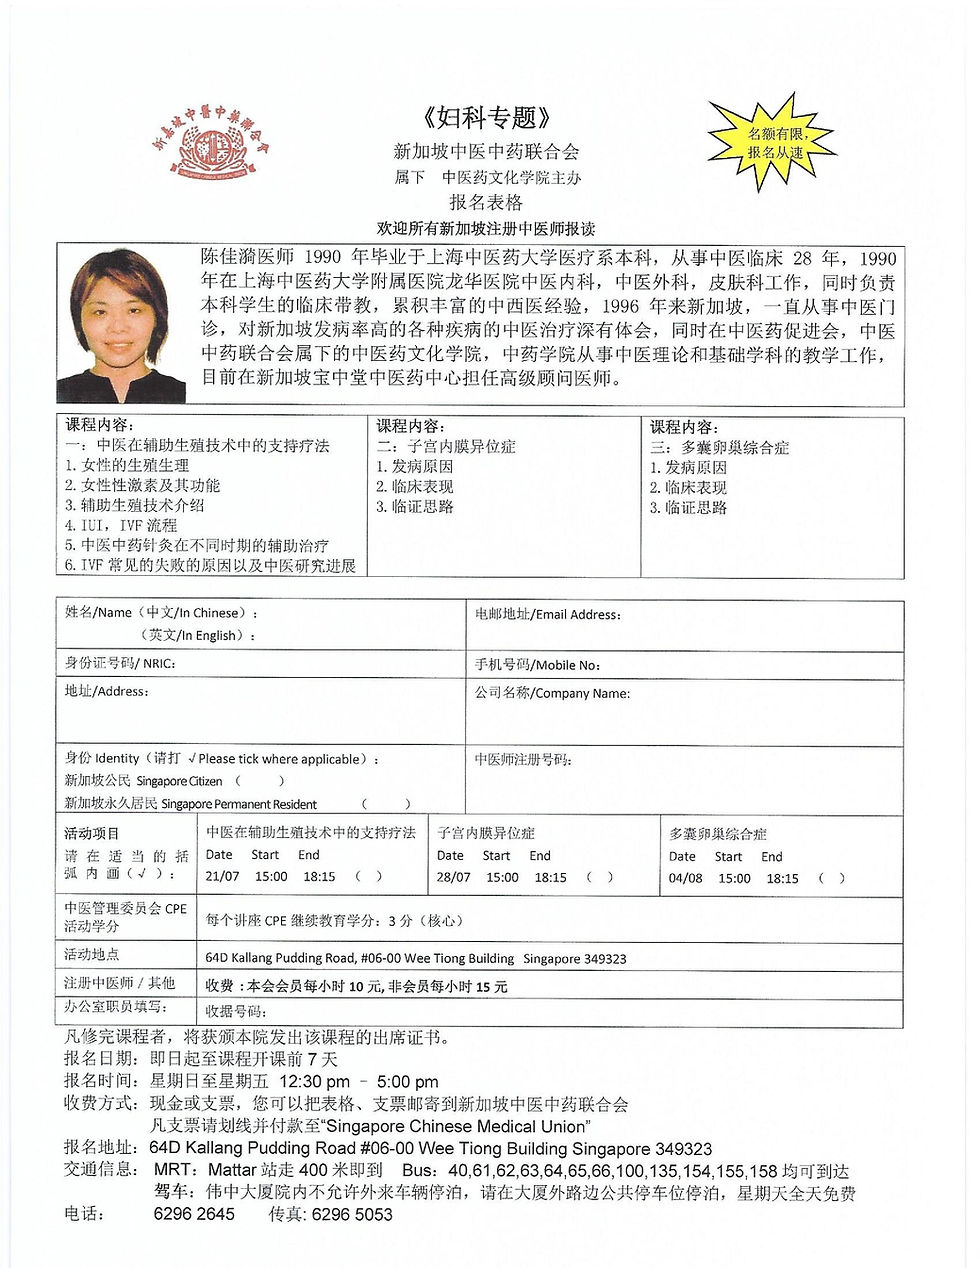 《妇科专题》
新加坡中医中药联合会
属下 中医药文化学院主办
报名表格
欢迎所有新加坡注册中医师报读
新嘉坡中醫中藥聯合會
SINGAPORE CHINESE MEDICAL UNION
名额有限,
报名从速
陈佳漪医师 1990 年毕业于上海中医药大学医疗系本科，从事中医临床 28 年，1990
年在上海中医药大学附属医院龙华医院中医内科，中医外科，皮肤科工作，同时负责
本科学生的临床带教，累积丰富的中西医经验，1996 年来新加坡，一直从事中医门
诊，对新加坡发病率高的各种疾病的中医治疗深有体会，同时在中医药促进会，中医
中药联合会属下的中医药文化学院，中药学院从事中医理论和基础学科的教学工作，
目前在新加坡宝中堂中医药中心担任高级顾问医师。
课程内容:
一：中医在辅助生殖技术中的支持疗法
1. 女性的生殖生理
2. 女性性激素及其功能
3. 辅助生殖技术介绍
4. IUI，IVF 流程
5. 中医中药针灸在不同时期的辅助治疗
6. IVF 常见的失败的原因以及中医研究进展
课程内容:
二：子宫内膜异位症
1. 发病原因
2. 临床表现
3. 临证思路
课程内容:
三：多囊卵巢综合症
1. 发病原因
2. 临床表现
3. 临证思路
姓名/Name（中文/In Chinese）:
（英文/In English）:
电邮地址/Email Address:
身份证号码/ NRIC:
手机号码/Mobile No:
地址/Address:
公司名称/Company Name:
身份 Identity（请打 √ Please tick where applicable）:
新加坡公民 Singapore Citizen （ ）
新加坡永久居民 Singapore Permanent Resident （ ）
中医师注册号码:
活动项目
请 在 适 当 的 括
弧 内 画（√ ）:
中医在辅助生殖技术中的支持疗法
Date Start End
21/07 15:00 18:15 （ ）
子宫内膜异位症
Date Start End
28/07 15:00 18:15 （ ）
多囊卵巢综合症
Date Start End
04/08 15:00 18:15 （ ）
中医管理委员会 CPE
活动学分
每个讲座 CPE 继续教育学分: 3 分（核心）
活动地点
64D Kallang Pudding Road, #06-00 Wee Tiong Building Singapore 349323
注册中医师 / 其他
收费 : 本会会员每小时 10 元, 非会员每小时 15 元
办公室职员填写:
收据号码:
凡修完课程者，将获颁本院发出该课程的出席证书。
报名日期: 即日起至课程开课前 7 天
报名时间: 星期日至星期五 12:30 pm - 5:00 pm
收费方式: 现金或支票，您可以把表格、支票邮寄到新加坡中医中药联合会
凡支票请划线并付款至“Singapore Chinese Medical Union”
报名地址: 64D Kallang Pudding Road #06-00 Wee Tiong Building Singapore 349323
交通信息: MRT: Mattar 站走 400 米即到 Bus: 40,61,62,63,64,65,66,100,135,154,155,158 均可到达
驾车: 伟中大厦院内不允许外来车辆停泊，请在大厦外路边公共停车位停泊，星期天全天免费
电话: 6296 2645 传真: 6296 5053